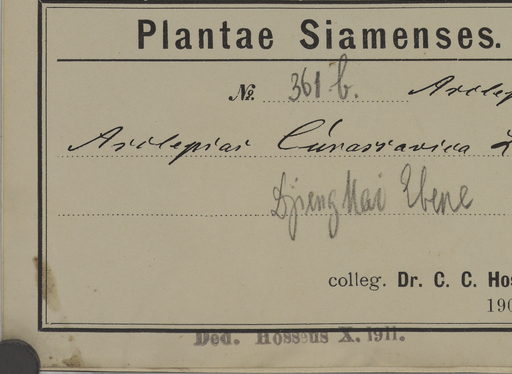 Plantae Siamenses.
No. 361 b. Asclep
Asclepias Curassavica L
Djieng Mai Ebene
colleg. Dr. C. C. Hos
190
Ded. Hosseus X. 1911.